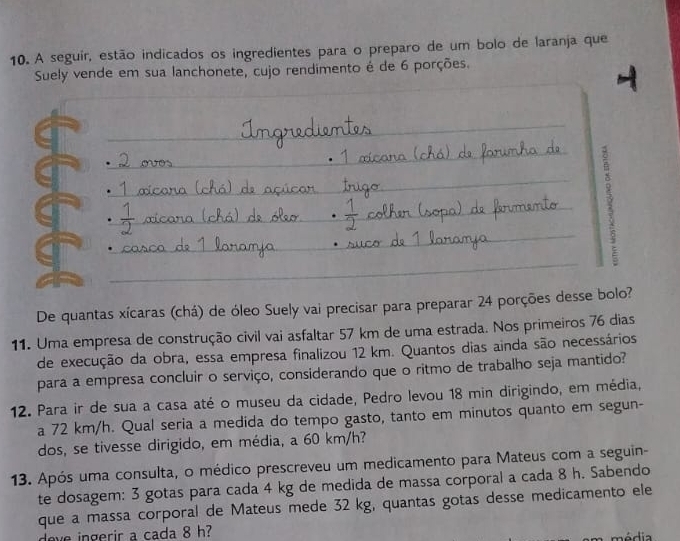 10. A seguir, estão indicados os ingredientes para o preparo de um bolo de laranja que
Suely vende em sua lanchonete, cujo rendimento é de 6 porções.
Ingredientes
• 2 ovos
• 1 xícara (chá) de farinha de
• 1 xícara (chá) de açúcar
trigo
• 1/2 xícara (chá) de óleo
• 1/2 colher (sopa) de fermento
• casca de 1 laranja
• suco de 1 laranja
De quantas xícaras (chá) de óleo Suely vai precisar para preparar 24 porções desse bolo?
11. Uma empresa de construção civil vai asfaltar 57 km de uma estrada. Nos primeiros 76 dias
de execução da obra, essa empresa finalizou 12 km. Quantos dias ainda são necessários
para a empresa concluir o serviço, considerando que o ritmo de trabalho seja mantido?
12. Para ir de sua a casa até o museu da cidade, Pedro levou 18 min dirigindo, em média,
a 72 km/h. Qual seria a medida do tempo gasto, tanto em minutos quanto em segun-
dos, se tivesse dirigido, em média, a 60 km/h?
13. Após uma consulta, o médico prescreveu um medicamento para Mateus com a seguin-
te dosagem: 3 gotas para cada 4 kg de medida de massa corporal a cada 8 h. Sabendo
que a massa corporal de Mateus mede 32 kg, quantas gotas desse medicamento ele
deve ingerir a cada 8 h?
em média